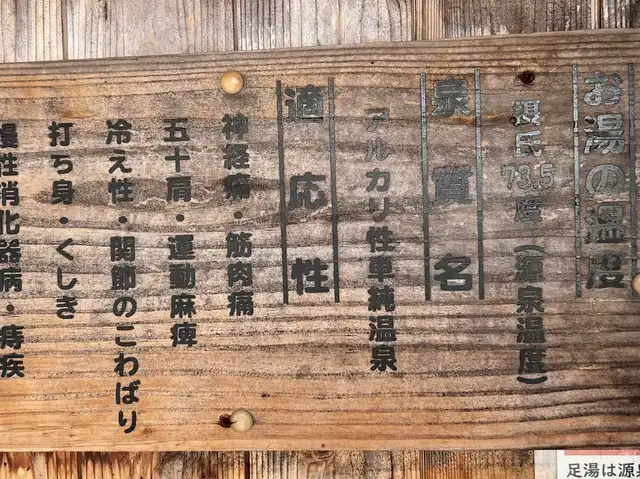 お湯の温度
摂氏73.5度(源泉温度)
泉質名
アルカリ性単純温泉
適応性
神経痛・筋肉痛
五十肩・運動麻痺
冷え性・関節のこわばり
打ち身・くじき
慢性消化器病・痔疾
足湯は源泉